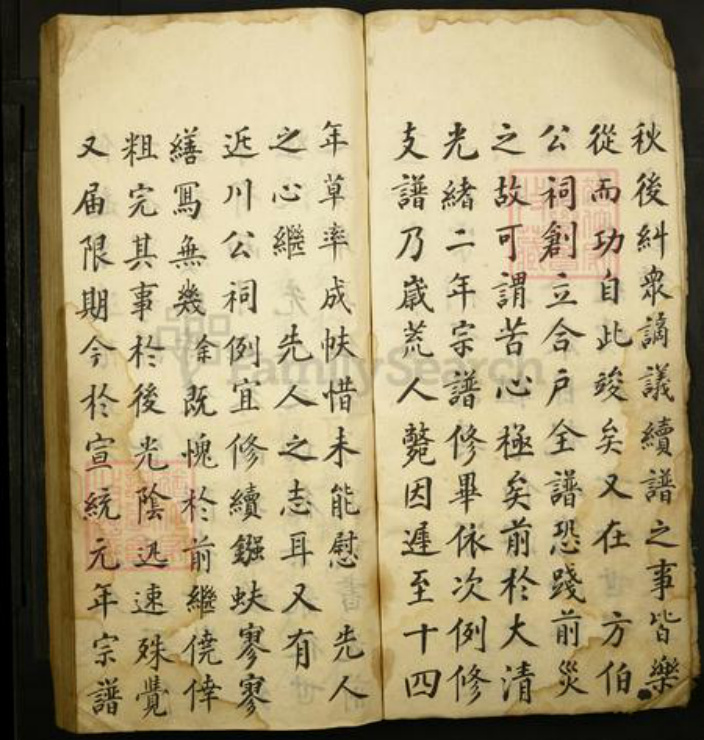 秋後糾衆謫議續譜之事皆樂
從而功自此竣矣又在 方伯
公祠創立合户全譜恐踐前災
之故可謂苦心極矣前於大清
光緒二年宗譜修畢依次例修
支譜乃歲荒人斃因遲至十四
年草率成帙惜未能慰 先人
之心繼 先人之志耳又有
近川公祠例宜修續鏹蚨寥寥
繕寫無幾餘既愧於前繼僥倖
粗完其事於後光陰迅速殊覺
又届限期今於宣統元年宗譜
FamilySearch